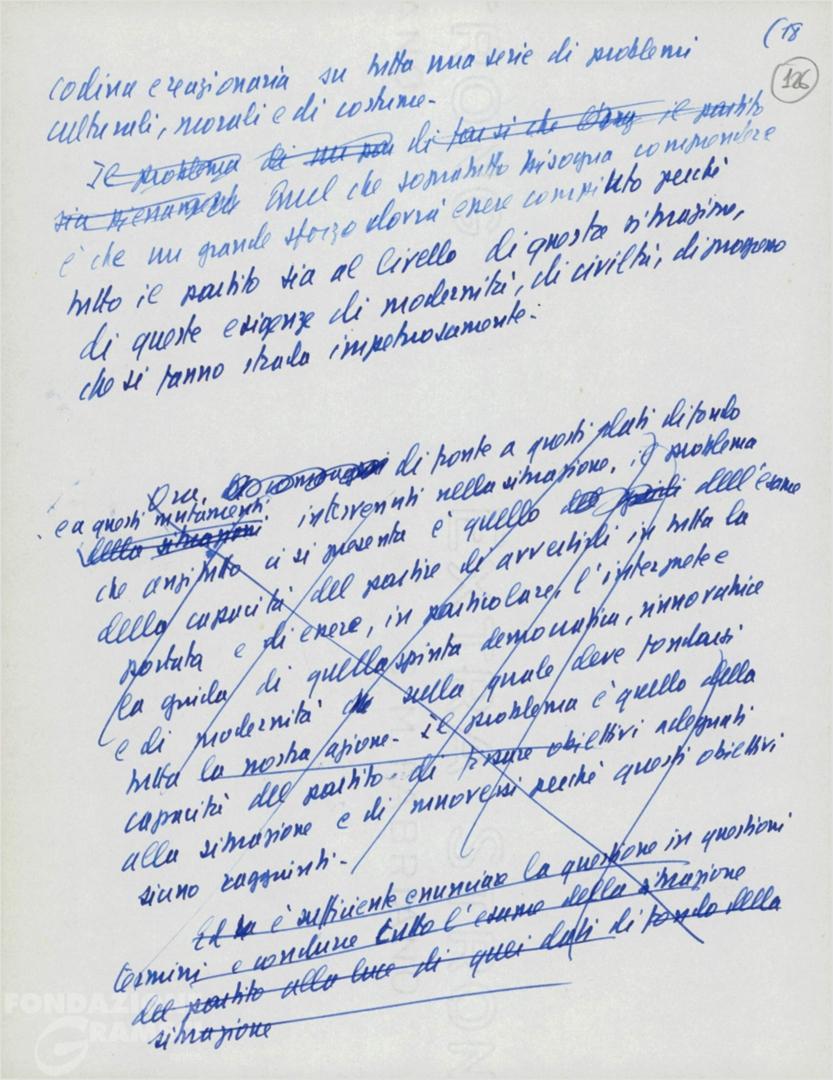 (18
126
codina e reazionaria su tutta una serie di problemi
culturali, morali e di costume.
Il problema di di far si che il partito
sia pienamente Quel che sopratutto bisogna comprendere
è che un grande sforzo dovrà essere compiuto perché
tutto il partito sia al livello di questa situazione,
di queste esigenze di modernità, di civiltà, di progresso
che si fanno strada impetuosamente.
Ora, di fronte a questi dati di fondo
e a questi mutamenti
della situazione intervenuti nella situazione, il problema
che anzitutto ci si presenta è quello dell'esame
della capacità del partito di avvertirli in tutta la
portata e di essere, in particolare, l'interprete e
la guida di quella spinta democratica, rinnovatrice
e di modernità sulla quale deve fondarsi
tutta la nostra azione. Il problema è quello della
capacità del partito di fissare obiettivi adeguati
alla situazione e di rinnoversi perché questi obiettivi
siano raggiunti.
Ed è sufficiente enunciare la questione in questioni
termini e condurre tutto l'esame della situazione
del partito alla luce di quei dati di fondo della
situazione
FONDAZIONE
GRAMSCI